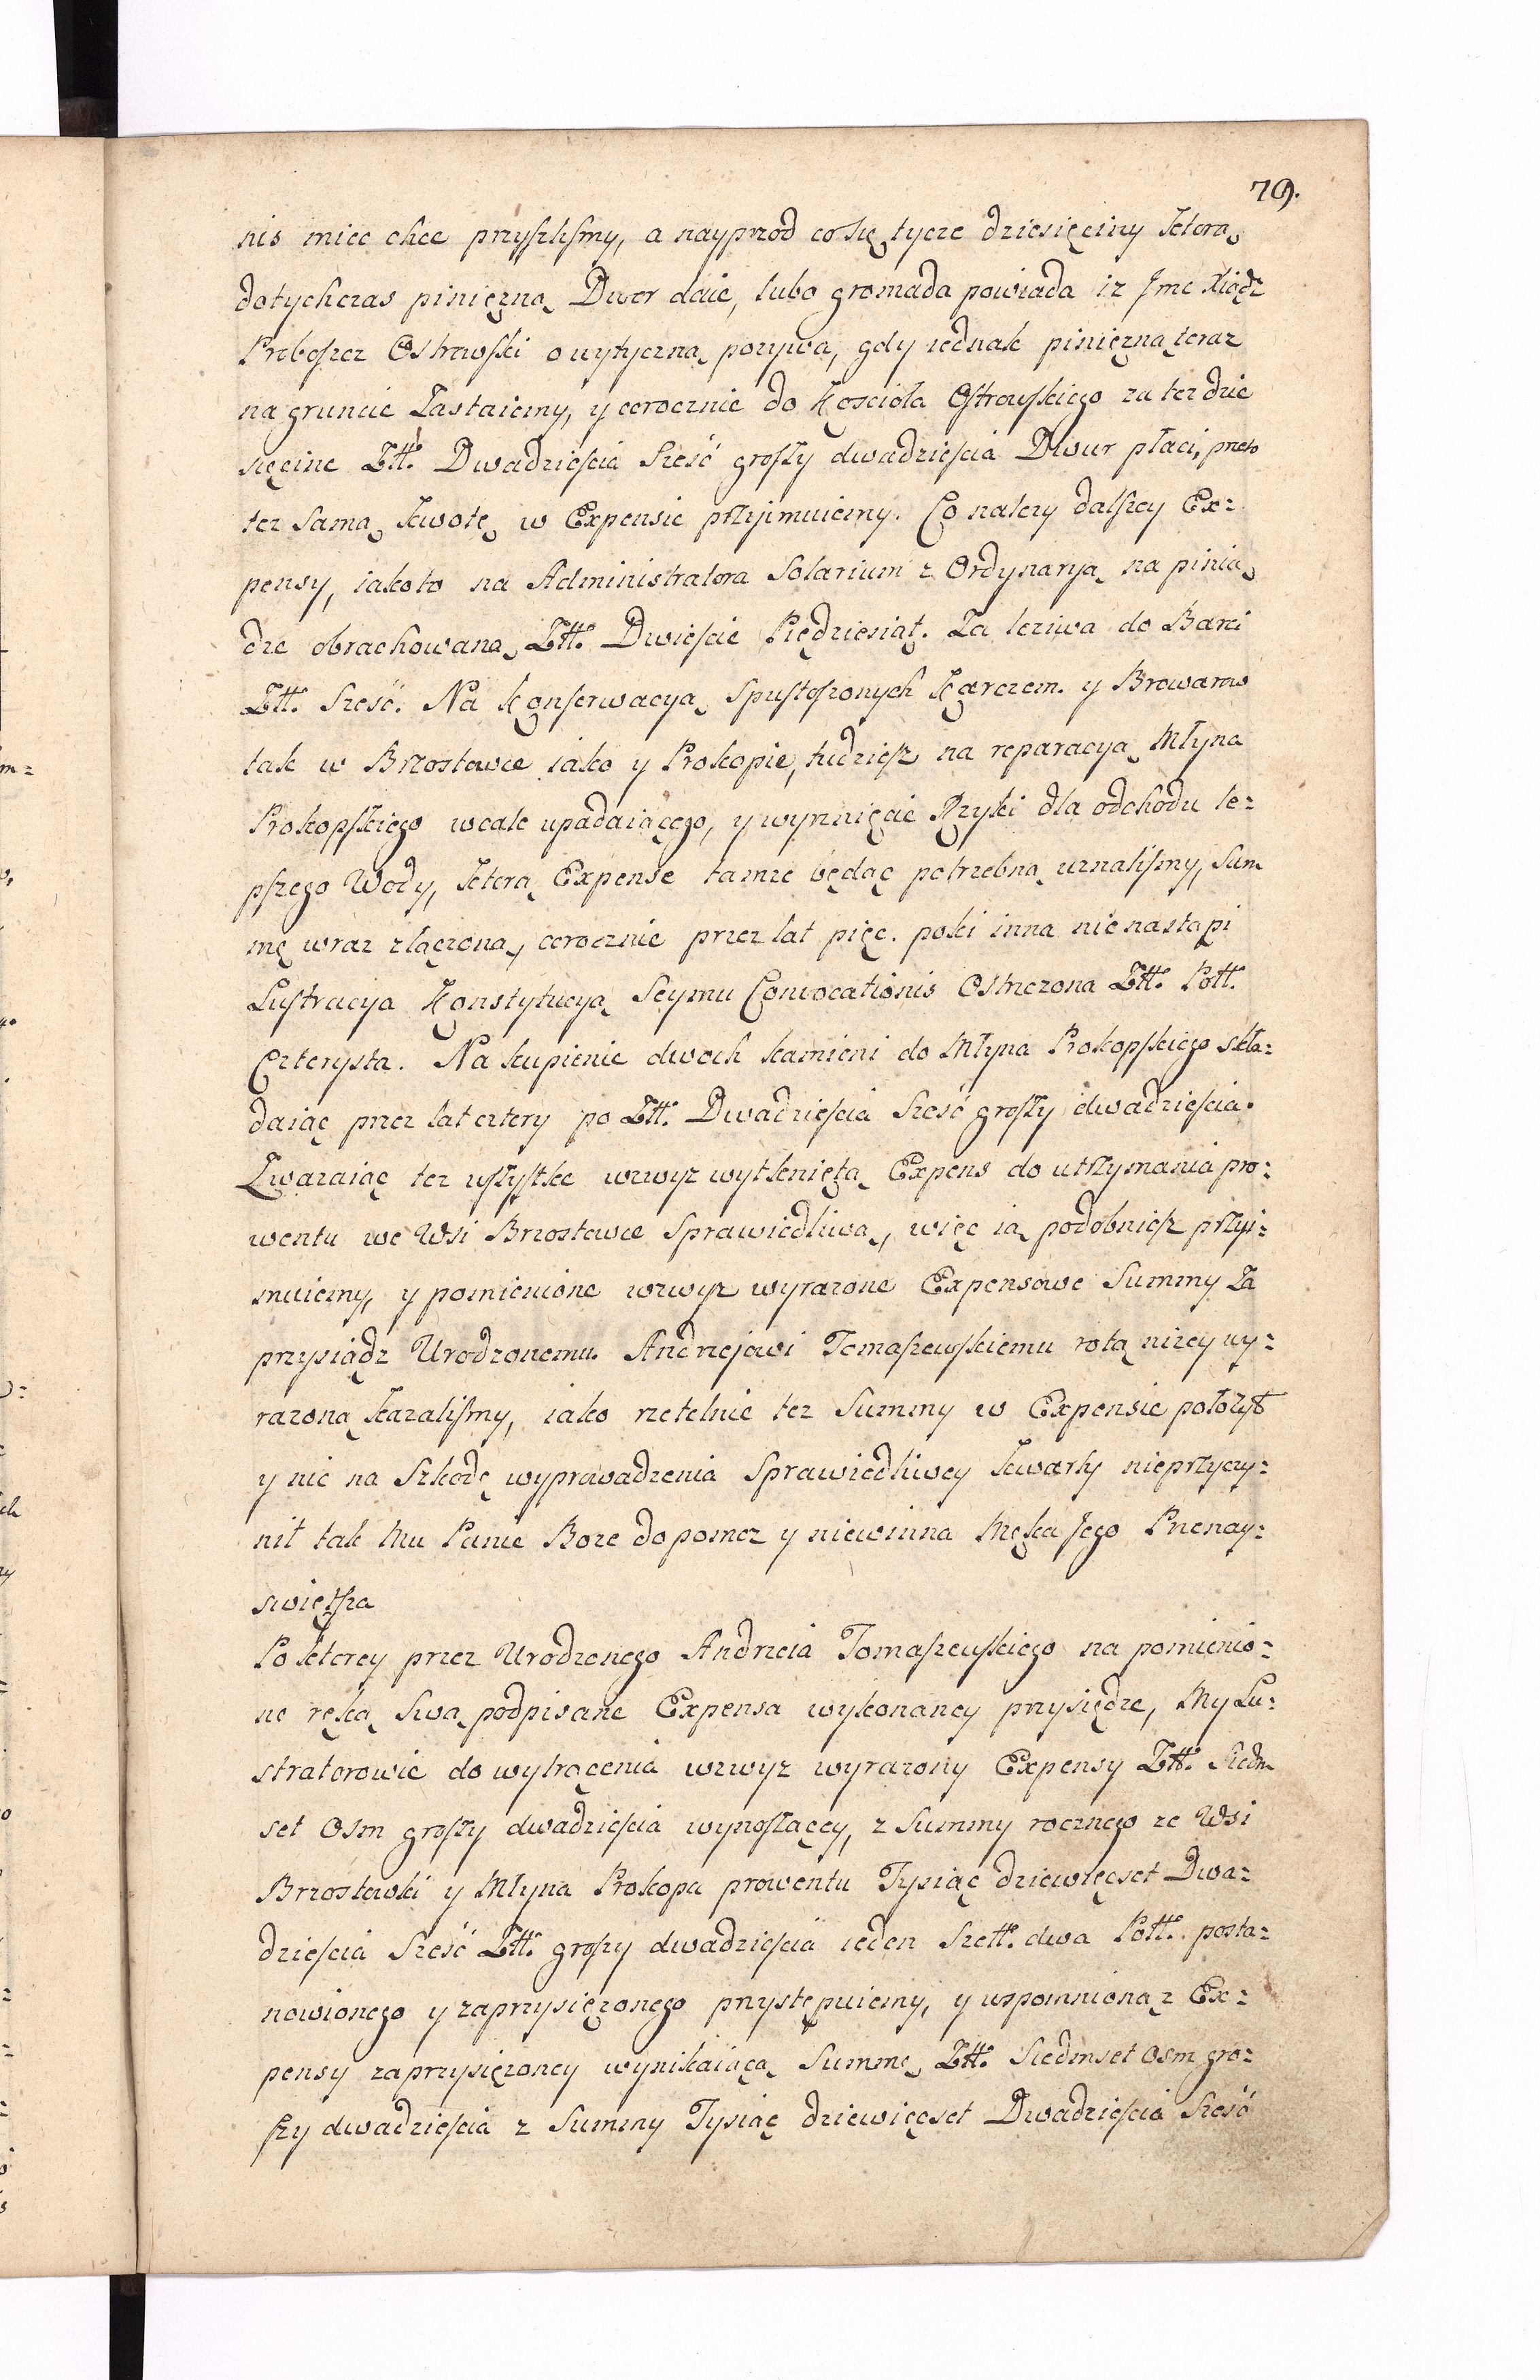 79.
nis miec chce przyszlismy, a nayprzod co się tycze dziesięciny ktorą
dotychczas pinięzną Dwor daie, lubo gromada powiada iz Jmc Xiądz
Proboszcz Ostrowski o wytyczną pozywa, gdy iednak pinięzną teraz
na gruncie Zastaiemy, y corocznie do Koscioła Ostrowskiego za tez dzie
sięcine Złł. Dwadziescia Szesć groszy dwadziescia Dwur płaci, przeto
tez Samą kwotę w Expensie przyimuiemy. Co nalezy dalszey Ex=
pensy, iako to na Administratora Solarium z Ordynaryą na pinią
dze obrachowaną Złł. Dwiescie Piędziesiąt. Za leziwa do Barci
Złł. Szesć. Na Konserwacyą Spustoszonych Karczem. y Browarow
tak w Brzostowce iako y Prokopie, tudziesz na reparacyą Młyna
Prokopskiego wcale upadaiącego, y wyrznięcie Rzyki dla odchodu le=
pszego Wody, ktorą Expense tamze będąc potrzebną uznalismy, Sum
mę wraz złączoną, corocznie przez lat pięc. poki inna nie nastąpi
Lustracya Konstytucyą Seymu Convocationis Ostrzezona Złł. Poll.
Czterysta. Na kupienie dwoch kamieni do Młyna Prokopskiego skła=
daiąc przez lat cztery po Złł. Dwadziescia Szesć groszy dwadziescia.
Zwazaiąc tez wszystkę wzwyz wytknięta Expens do utrzymania pro=
wentu we Wsi Brzostowce Sprawiedliwą, więc ią podobniesz przyi=
muiemy, y pomienione wzwyz wyrazone Expensowe Summy Za
przysiądz Urodzonemu Andrzejowi Tomaszewskiemu rotą nizey wy=
razoną kazalismy, iako rzetelnie tez Summy w Expensie połozył
y nic na Szkodę wyprowadzenia Sprawiedliwey kwarty nieprzyczy=
nił tak Mu Panie Boze dopomoz y niewinna Męka Jego Przenay=
swiętsza
Po ktorey przez Urodzonego Andrzeia Tomaszewskiego na pomienio=
ne ręką Swą podpisane Expensa wykonaney przysiędze, My Lu=
stratorowie do wytrącenia wzwyz wyrazony Expensy Złł. Siedm
set Osm groszy dwadziescia wynoszącey, z Summy rocznego ze Wsi
Brzostowki y Młyna Prokopa prowentu Tysiąc dziewięcset Dwa=
dziescia Szesć Złł. groszy dwadziescia ieden Szell. dwa Poll. posta=
nowionego y zaprzysięzonego przystępuiemy, y wspomnioną z Ex=
pensy zaprzysięzoney wynikaiącą Summę Złł. Siedmset Osm gro=
szy dwadziescia z Summy Tysiąc dziewięcset Dwadziescia Szesć